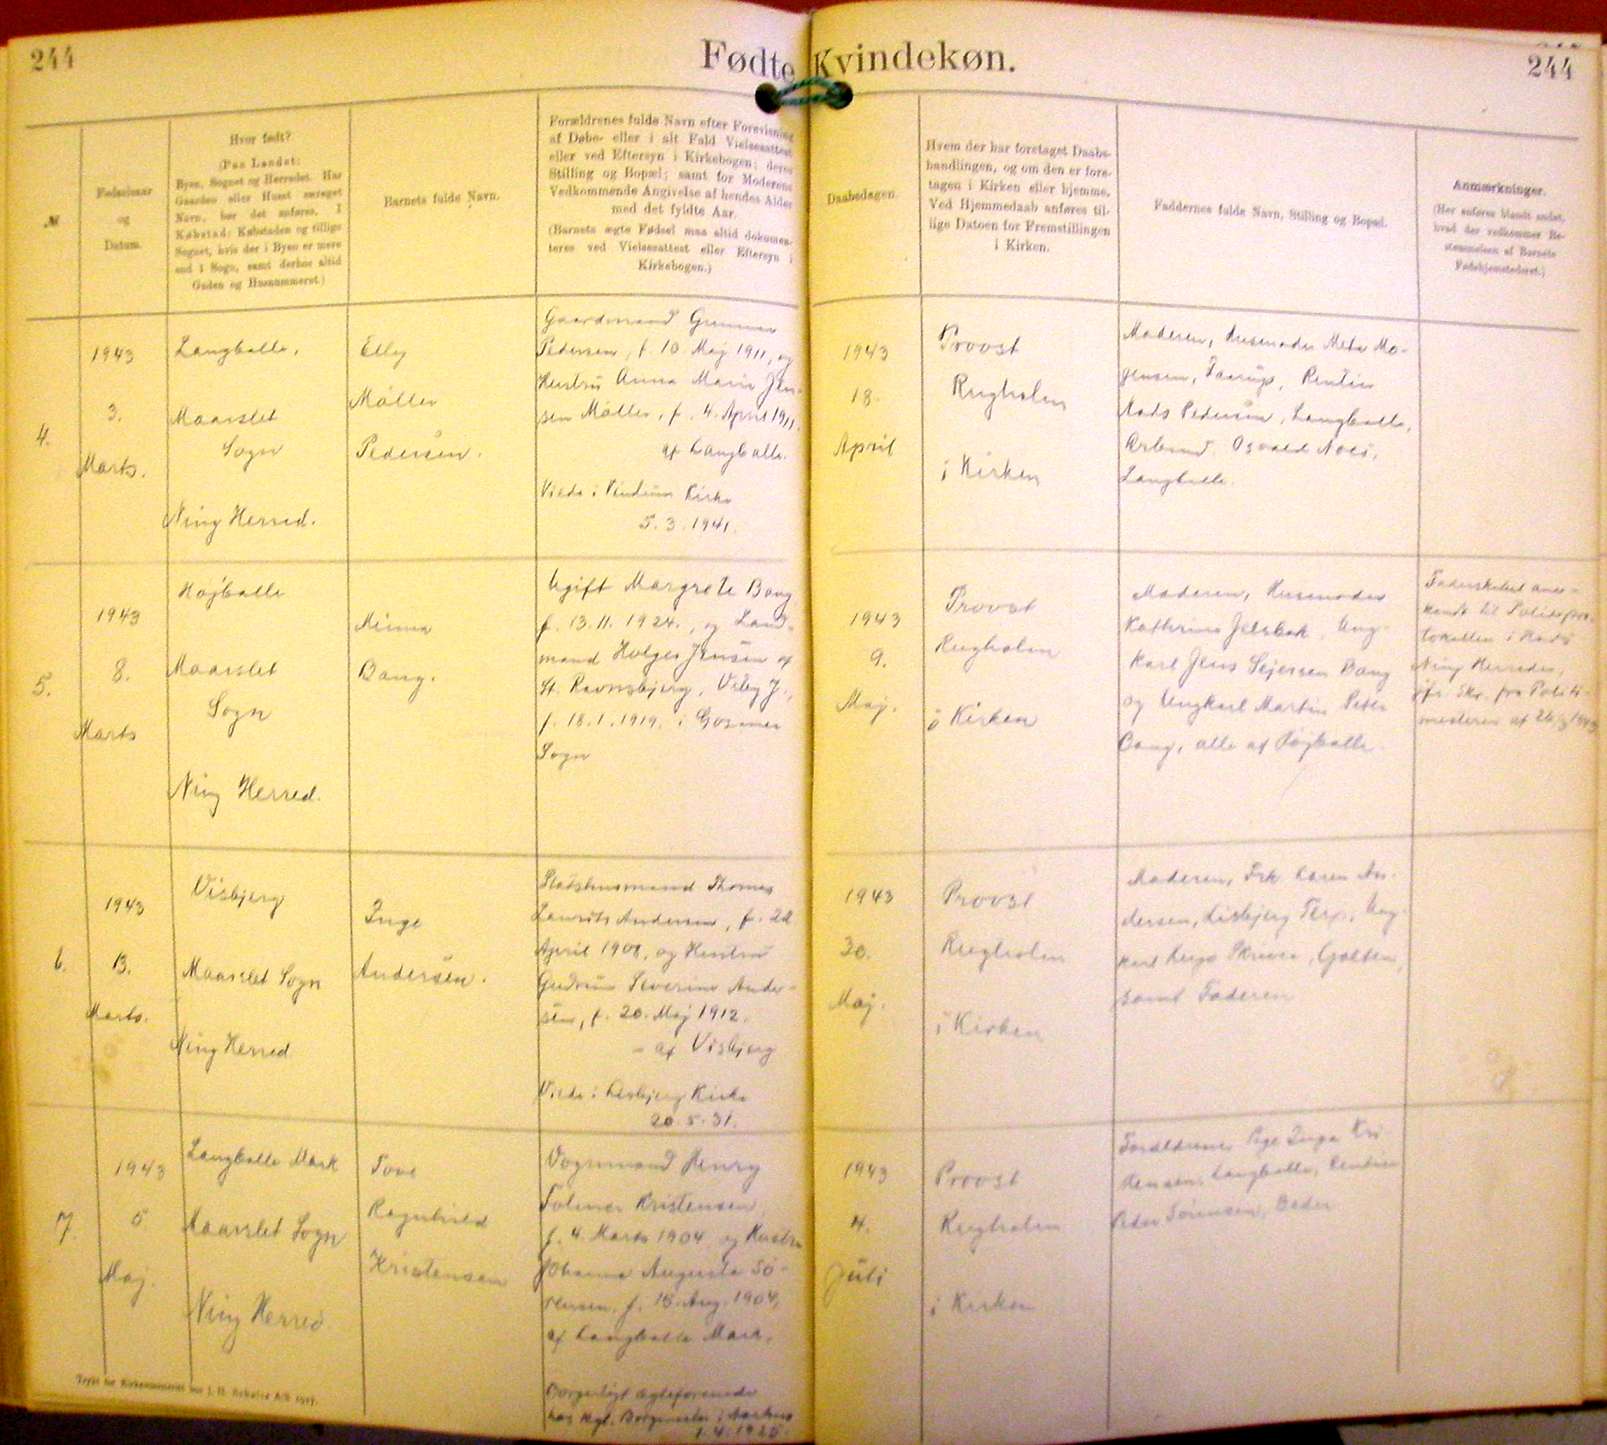 244
Fødte Kvindekøn.
244
№
Fødselsaar
og
Datum.
Hvor født?
(Paa Landet:
Byen, Sognet og Herredet. Har
Gaarden eller Huset særeget
Navn, bør det anføres. I
Købstad: Købstaden og tillige
Sognet, hvis der i Byen er mere
end 1 Sogn, samt derhos altid
Gaden og Husnummeret.)
Barnets fulde Navn.
Forældrenes fulde Navn efter Forevisning
af Døbe- eller i alt Fald Vielsesattest
eller ved Eftersyn i Kirkebogen; deres
Stilling og Bopæl; samt for Moderens
Vedkommende Angivelse af hendes Alder
med det fyldte Aar.
(Barnets ægte Fødsel maa altid dokumen-
teres ved Vielsesattest eller Eftersyn i
Kirkebogen.)
Daabsdagen.
Hvem der har foretaget Daabs-
handlingen, og om den er fore-
tagen i Kirken eller hjemme.
Ved Hjemmedaab anføres til-
lige Datoen for Fremstillingen
i Kirken.
Faddernes fulde Navn, Stilling og Bopæl.
Anmærkninger.
(Her anføres blandt andet,
hvad der vedkommer Be-
stemmelsen af Barnets
Fødehjemstedsret.)
4.
1943
3.
Marts.
Langballe,
Maarslet
Sogn
Ning Herred.
Elly
Møller
Pedersen.
Gaardmand Gunnar
Pedersen, f. 10. Maj 1911, og
Hustru Anna Marie Jen-
sen Møller, f. 4. April 1911,
af Langballe.
Viede i Kirke
5. 3. 1941.
1943
18.
April
Provst
Rugholm
i Kirken
Moderen, Husmoder Meta Mo-
gensen, Taarup, Rentier
Mads Pedersen, Langballe,
Osvald
Langballe.
5.
1943
8.
Marts
Højballe
Maarslet
Sogn
Ning Herred.
Minna
Bang.
Ugift Margrete Bang
f. 13. 11. 1924., og Land-
mand Holger Jensen af
St. Ravnsbjerg, Viby J.,
f. 18. 1. 1919. i Gosmer
Sogn
1943
9.
Maj.
Provst
Rugholm
i Kirken
Moderen, Husmoder
Kathrine Jelsbak, Ung-
karl Jens Sejersen Bang
og Ungkarl Martin Peter
Bang, alle af Højballe.
Faderskabet aner-
kendt til Politipro-
tokollen i Hads
Ning Herreder,
jfr. Skr. fra Politi-
mesteren af 26/3 1943
6.
1943
13.
Marts.
Visbjerg
Maarslet Sogn
Ning Herred
Inge
Andersen.
Statshusmand Thomas
Laurits Andersen, f. 22
April 1908, og Hustru
Gudrun Severine Ander-
sen, f. 20. Maj 1912.
- af Visbjerg
Viede i Lisbjerg Kirke
20. 5. 31.
1943
30.
Maj.
Provst
Rugholm
i Kirken
Moderen, Frk. Karen An-
dersen, Lisbjerg Terp, Ung-
karl Skriver, Galten,
samt Faderen
7.
1943
5
Maj.
Langballe Mark
Maarslet Sogn
Ning Herred.
Tove
Ragnhild
Kristensen
Vognmand Henry
Folmer Kristensen
f. 4. Marts 1904 og Hustru
Johanne Augusta Sö-
rensen, f. 15. Aug. 1904,
af Langballe Mark.
Borgerligt ægteforenede
hos kgl. Borgmester i Aarhus
1. 4. 1925.
1943
4.
Juli
Provst
Rugholm
i Kirken
Forældrene, Pige Inga Kri-
stensen, Langballe, Rentier
Peder Sørensen, Beder
Trykt for Kirkeministeriet hos J. H. Schultz A/S. 1917.